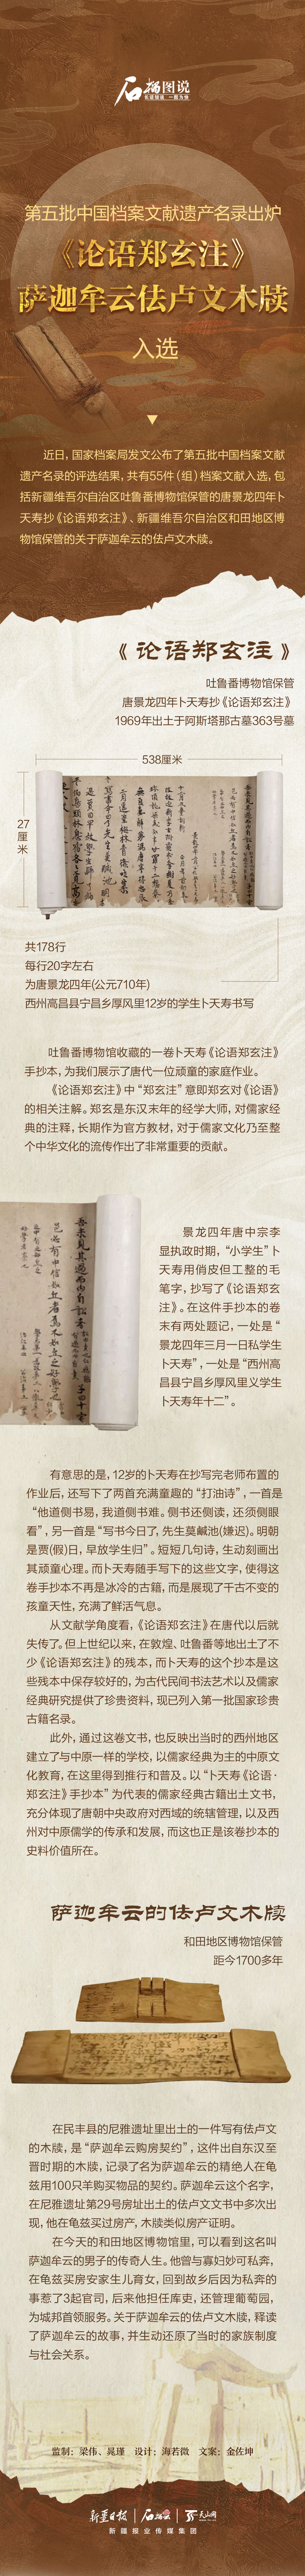 石榴图说
第五批中国档案文献遗产名录出炉
《论语郑玄注》
萨迦牟云佉卢文木牍
入选
近日，国家档案局发文公布了第五批中国档案文献
遗产名录的评选结果，共有55件（组）档案文献入选，包
括新疆维吾尔自治区吐鲁番博物馆保管的唐景龙四年卜
天寿抄《论语郑玄注》、新疆维吾尔自治区和田地区博
物馆保管的关于萨迦牟云的佉卢文木牍。
《论语郑玄注》
吐鲁番博物馆保管
唐景龙四年卜天寿抄《论语郑玄注》
1969年出土于阿斯塔那古墓363号墓
538厘米
27
厘
米
共178行
每行20字左右
为唐景龙四年(公元710年)
西州高昌县宁昌乡厚风里12岁的学生卜天寿书写
吐鲁番博物馆收藏的一卷卜天寿《论语郑玄注》
手抄本，为我们展示了唐代一位顽童的家庭作业。
《论语郑玄注》中“郑玄注”意即郑玄对《论语》
的相关注解。郑玄是东汉末年的经学大师，对儒家经
典的注释，长期作为官方教材，对于儒家文化乃至整
个中华文化的流传作出了非常重要的贡献。
景龙四年唐中宗李
显执政时期，“小学生”卜
天寿用俏皮但工整的毛
笔字，抄写了《论语郑玄
注》。在这件手抄本的卷
末有两处题记，一处是“
景龙四年三月一日私学生
卜天寿”，一处是“西州高
昌县宁昌乡厚风里义学生
卜天寿年十二”。
有意思的是，12岁的卜天寿在抄写完老师布置的
作业后，还写下了两首充满童趣的“打油诗”，一首是
“他道侧书易，我道侧书难。侧书还侧读，还须侧眼
看”，另一首是“写书今日了，先生莫鹹池(嫌迟)。明朝
是贾(假)日，早放学生归”。短短几句诗，生动刻画出
其顽童心理。而卜天寿随手写下的这些文字，使得这
卷手抄本不再是冰冷的古籍，而是展现了千古不变的
孩童天性，充满了鲜活气息。
从文献学角度看，《论语郑玄注》在唐代以后就
失传了。但上世纪以来，在敦煌、吐鲁番等地出土了不
少《论语郑玄注》的残本，而卜天寿的这个抄本是这
些残本中保存较好的，为古代民间书法艺术以及儒家
经典研究提供了珍贵资料，现已列入第一批国家珍贵
古籍名录。
此外，通过这卷文书，也反映出当时的西州地区
建立了与中原一样的学校，以儒家经典为主的中原文
化教育，在这里得到推行和普及。以“卜天寿《论语·
郑玄注》手抄本”为代表的儒家经典古籍出土文书，
充分体现了唐朝中央政府对西域的统辖管理，以及西
州对中原儒学的传承和发展，而这也正是该卷抄本的
史料价值所在。
萨迦牟云的佉卢文木牍
和田地区博物馆保管
距今1700多年
在民丰县的尼雅遗址里出土的一件写有佉卢文
的木牍，是“萨迦牟云购房契约”，这件出自东汉至
晋时期的木牍，记录了名为萨迦牟云的精绝人在龟
兹用100只羊购买物品的契约。萨迦牟云这个名字，
在尼雅遗址第29号房址出土的佉卢文文书中多次出
现，他在龟兹买过房产，木牍类似房产证明。
在今天的和田地区博物馆里，可以看到这名叫
萨迦牟云的男子的传奇人生。他曾与寡妇妙可私奔，
在龟兹买房安家生儿育女，回到故乡后因为私奔的
事惹了3起官司，后来他担任库吏，还管理葡萄园，
为城邦首领服务。关于萨迦牟云的佉卢文木牍，释读
了萨迦牟云的故事，并生动还原了当时的家族制度
与社会关系。
监制：梁伟、晁瑾 设计：海若微 文案：金佐坤
新疆日报 石榴云 天山网
新疆报业传媒集团